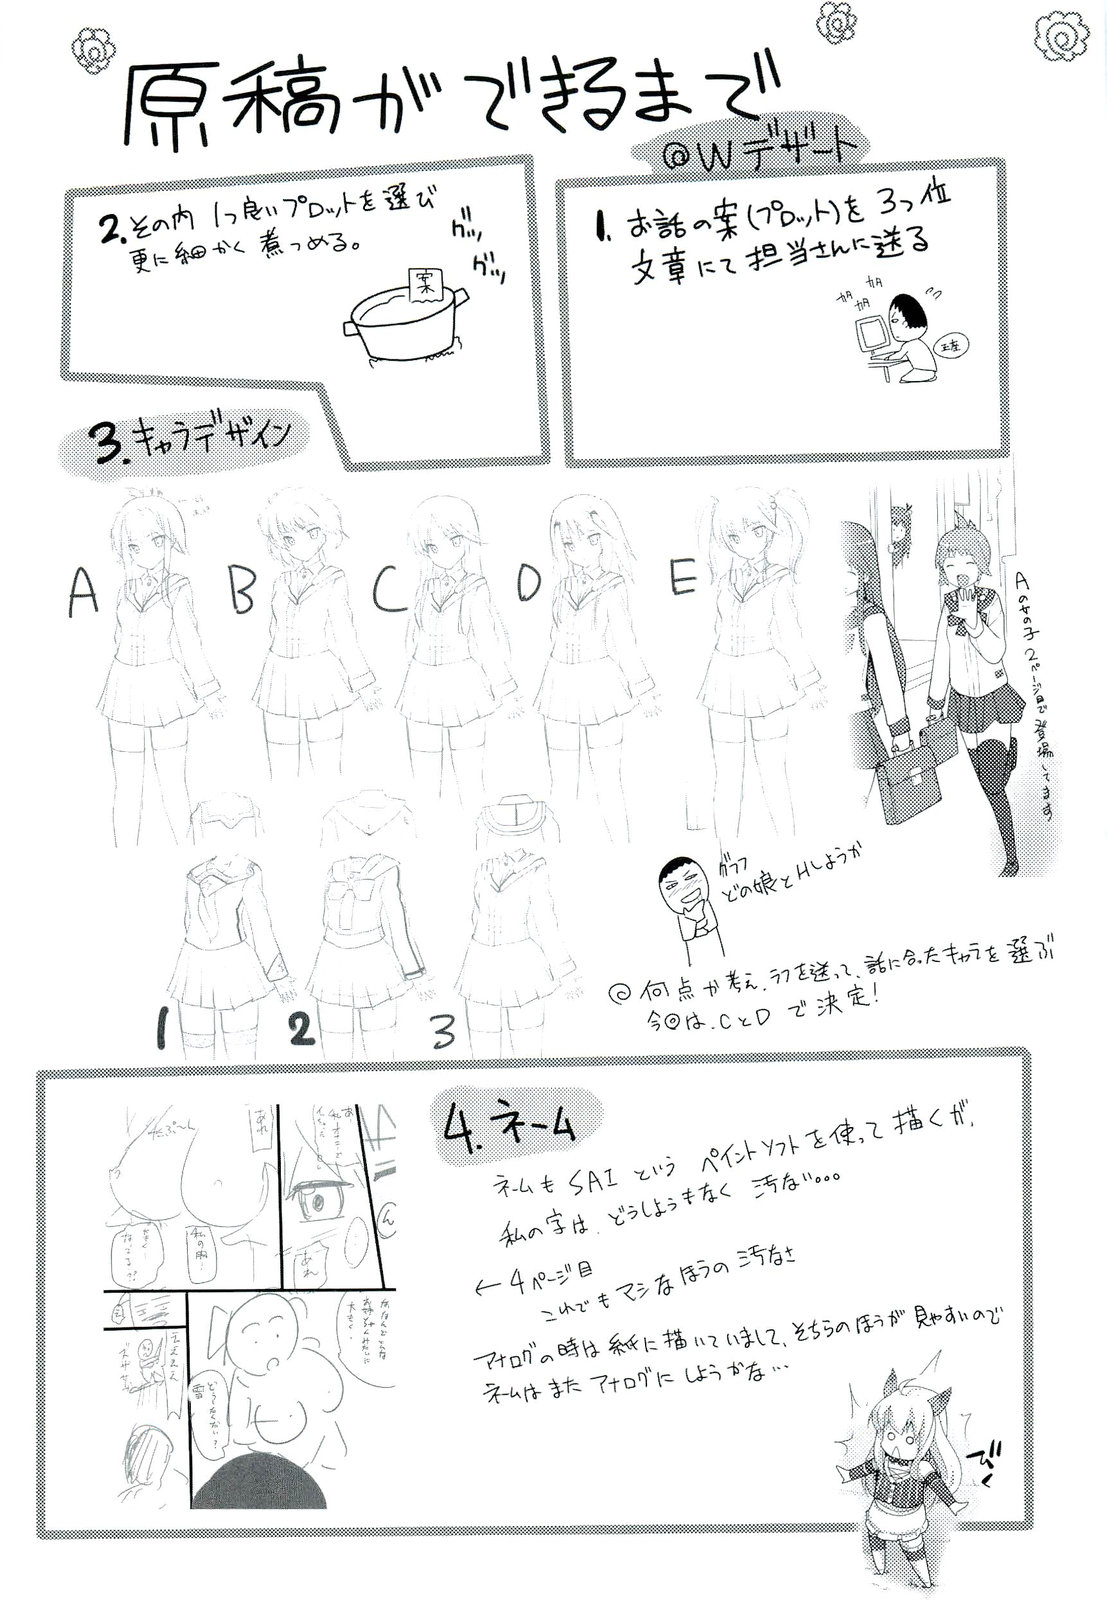 原稿ができるまで
@Wデザート
1. お話の案(プロット)を3つ位
文章にて担当さんに送る
カタ
カタ
カタ
2. その内1つ良いプロットを選び
更に細かく煮つめる。
グツ
グツ
案
3. キャラデザイン
A
B
C
D
E
Aの女の子2ページ目で登場してます
1
2
3
グフフ
どの娘とHしようか
◎何点か考え、ラフを送って、話に合ったキャラを選ぶ
今回は、CとDで決定!
4. ネーム
ネームもSAIというペイントソフトを使って描くが、
私の字は、どうしようもなく汚ない...
←4ページ目
これでもマシなほうの汚なさ
アナログの時は紙に描いていまして、そちらのほうが見やすいので
ネームはまたアナログにしようかな...
びく
あれ
たぷーん
私の胸…
あれ
ん
ええええ